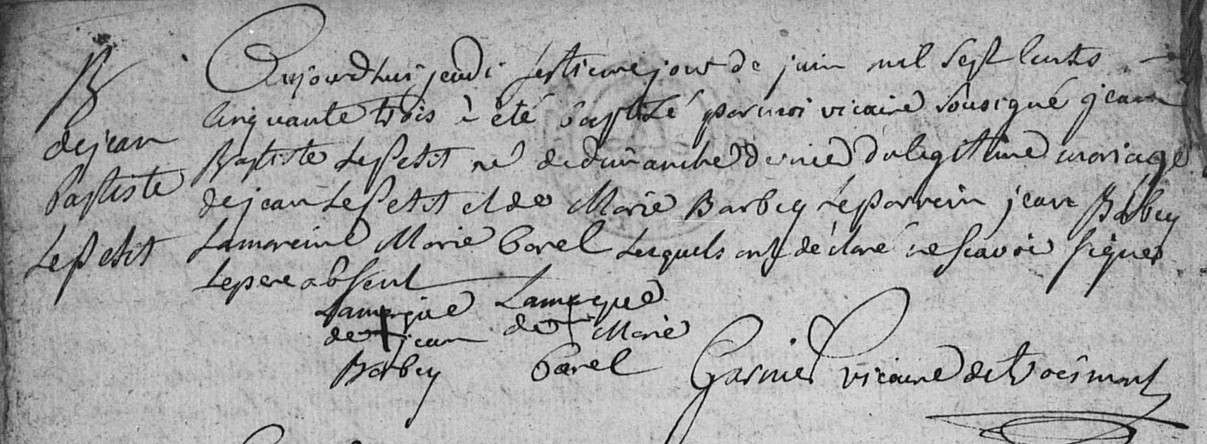 B
de jean
baptiste
LePetit
Aujourdhui jeudi septieme jour de juin mil sept cents
cinquante trois à été baptisé par moi vicaire sousigné jean
Baptiste LePetit né de dimanche dernier du legitime mariage
de jean LePetit et de Marie Barbey Le parrein jean Barbey
La mareine Marie Carel Lesquels ont déclaré ne scavoir signer
Le pere absent
La marque
de + jean
Barbey
La marque
de + Marie
Carel
Garnier vicaire de